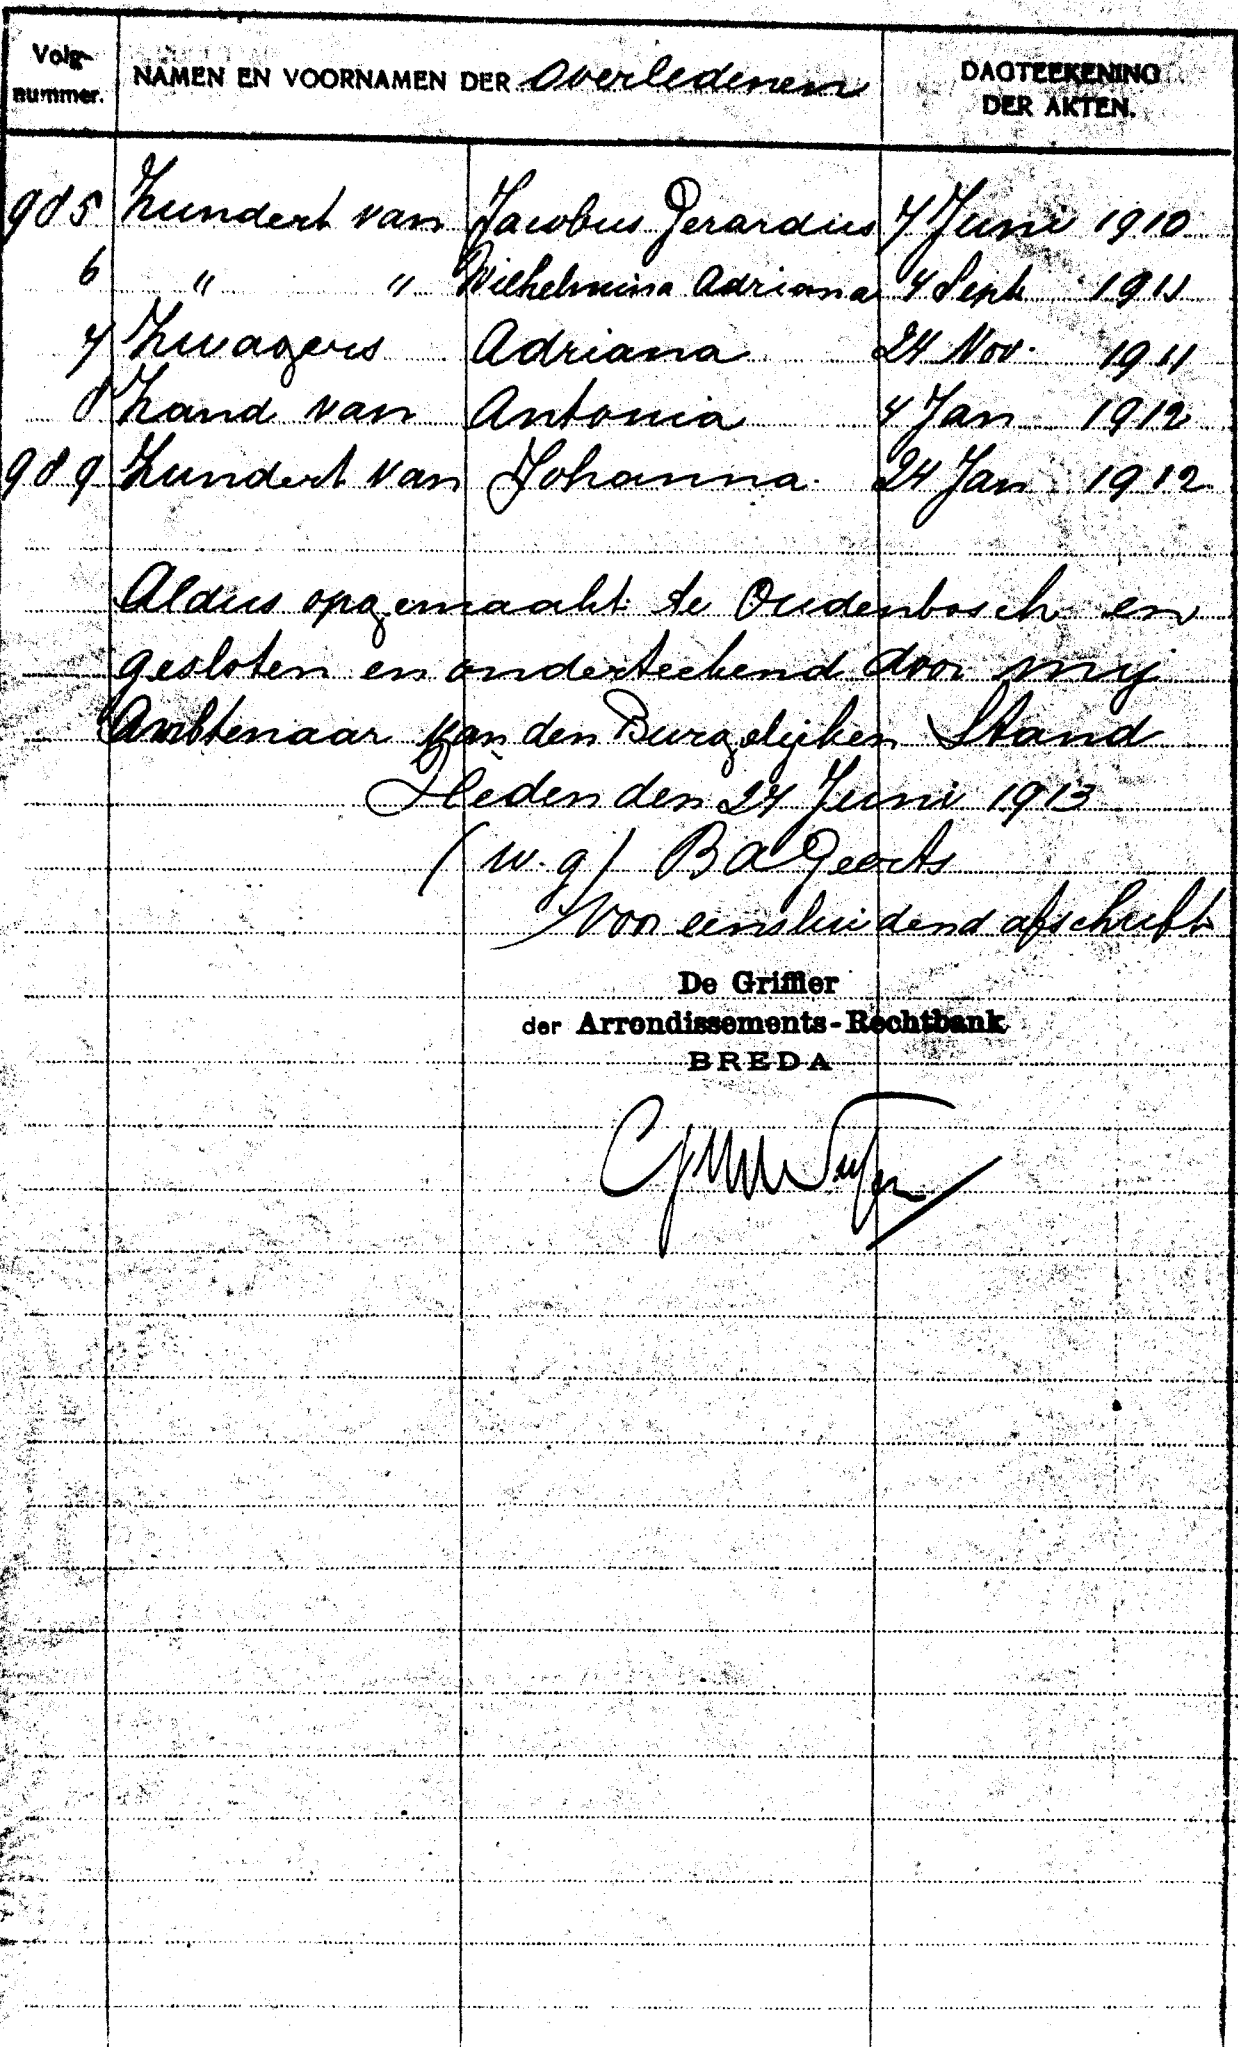 Volg-nummer. NAMEN EN VOORNAMEN DER Overledenen DAGTEEKENING DER AKTEN.
985 Zundert van Jacobus Gerardus 7 Juni 1910
6 " " Wilhelmina Adriana 7 Sept 1911
7 Zwagers Adriana 24 Nov. 1911
8 Zand van Antonia 7 Jan 1912
989 Zundert van Johanna. 24 Jan 1912
Aldus opgemaakt te Oudenbosch en
gesloten en onderteekend door mij
Ambtenaar van den Burgelijken Stand
Heden den 27 Juni 1913
(w.g) B A Geerts
Voor eensluidend afschrift
De Griffier
der Arrondissements-Rechtbank
BREDA